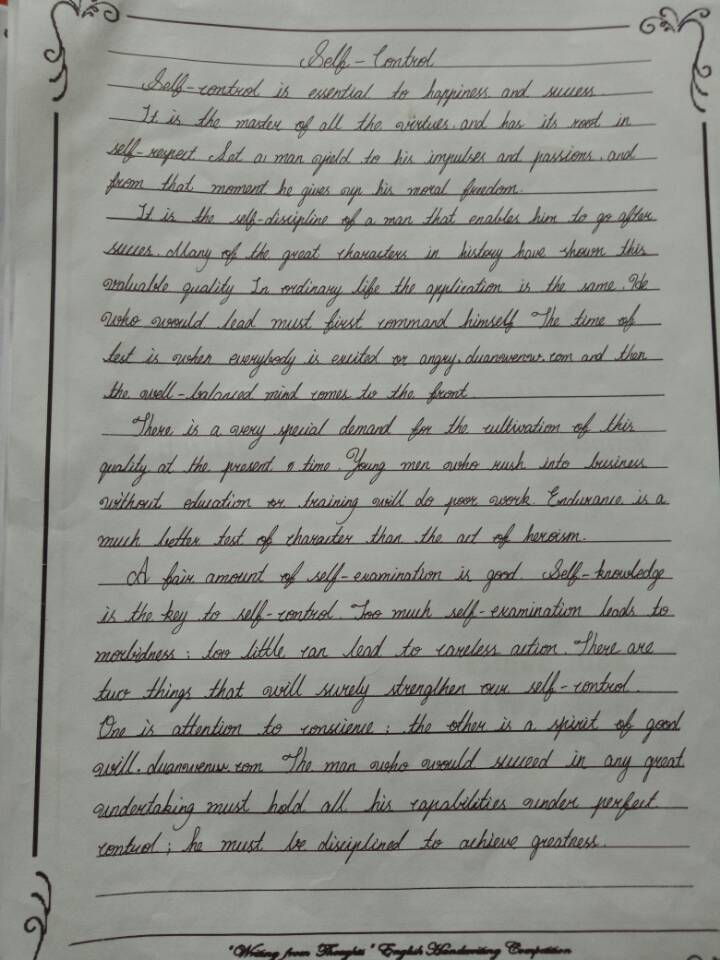 Self-Control
Self-control is essential to happiness and success.
It is the master of all the virtues, and has its root in
self-respect. Let a man yield to his impulses and passions, and
from that moment he gives up his moral freedom.
It is the self-discipline of a man that enables him to go after
succes. Many of the great characters in history have shown this
valuable quality In ordinary life the application is the same. He
who would lead must first command himself The time of
test is when everybody is excited or angry, duanwenw.com and then
the well-balanced mind comes to the front.
There is a very special demand for the cultivation of this
quality at the present time. Young men who rush into business
without education or training will do poor work. Endurance is a
much better test of character than the act of heroism.
A fair amount of self-examination is good. Self-knowledge
is the key to self-control. Too much self-examination leads to
morbidness; too little can lead to careless action. There are
two things that will surely strengthen our self-control.
One is attention to conscience; the other is a spirit of good
will. duanwenw.com The man who would succeed in any great
undertaking must hold all his capabilities under perfect
control; he must be disciplined to achieve greatness.
"Writing from Thoughts" English Handwriting Competition